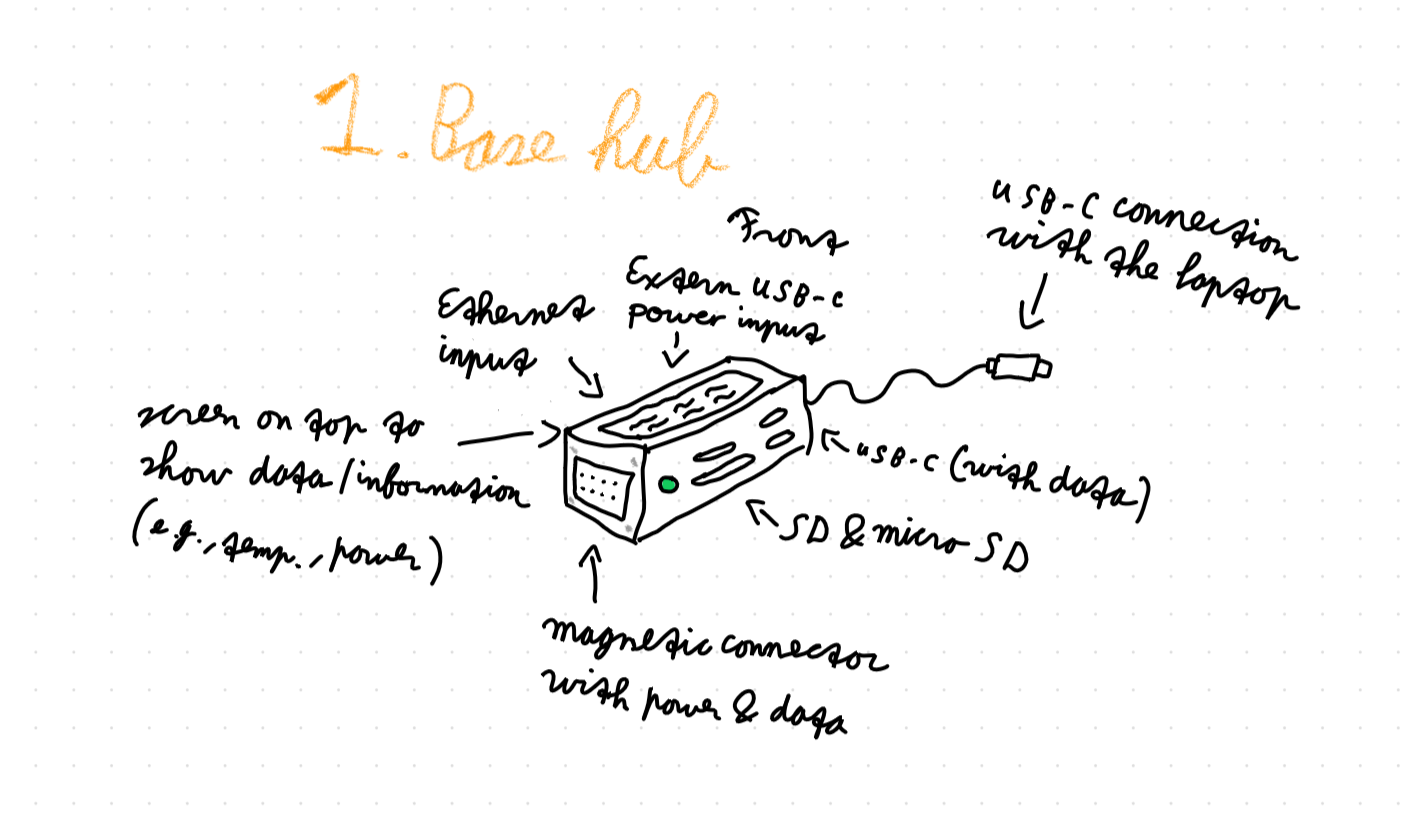 1. Base hub
Front
USB-C connection
with the laptop
Extern USB-C
power input
Ethernet
input
screen on top to
show data/information
(e.g., temp., power)
USB-C (with data)
SD & micro SD
magnetic connector
with power & data